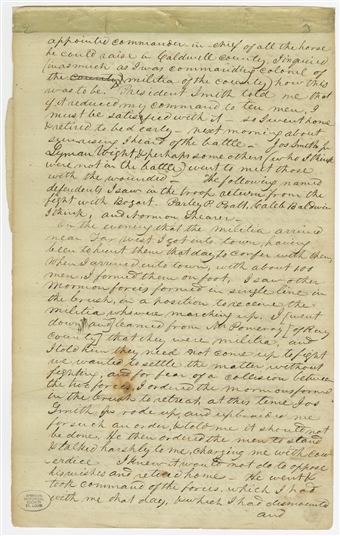 appointed commander in chief of all the horse
he could raise in Caldwell County. I inquired
(inasmuch as I was commanding colonel of
the county) militia of the county) how this
was to be. President Smith told me that
if it reduced my command to ten men, I
must be satisfied with it – so I went home
& retired to bed early – next morning about
sunrising I heard of the battle – Jos Smith jr
Lyman Wight & perhaps some others (who I think
were not in the battle) went to meet those
with the wounded – The following named
defendents I saw in the troop return from the
fight with Bogart. Parley P. Pratt, Caleb Baldwin
I think, and Norman Shearer.
On the evening that the militia arrived
near Far West I got into town, having
been to meet them that day to confer with them,
When I arrived into town, with about 100
men I formed them on foot, I saw other
Mormon forces formed in single line in
the brush, in a position to receive the
militia who were marching up. I went
down and learned from Mr Pomeroy [of Ray
county] that they were militia, and
I told him they need not come up to fight
we wanted to settle the matter without
fighting, and for fear of a collision between
the two forces I ordered the mormons formed
in the brush to retreat, at this time Jos
Smith jr rode up, and upbraided me
for such an order, & told me it should not
be done, He then ordered the men to stand
& talked harshly to me, charging me with cow-
ardice I knew it would not do to oppose
his wishes and retired home – He went &
took command of the forces, which I had
with me that day, & which I had dismounted
and